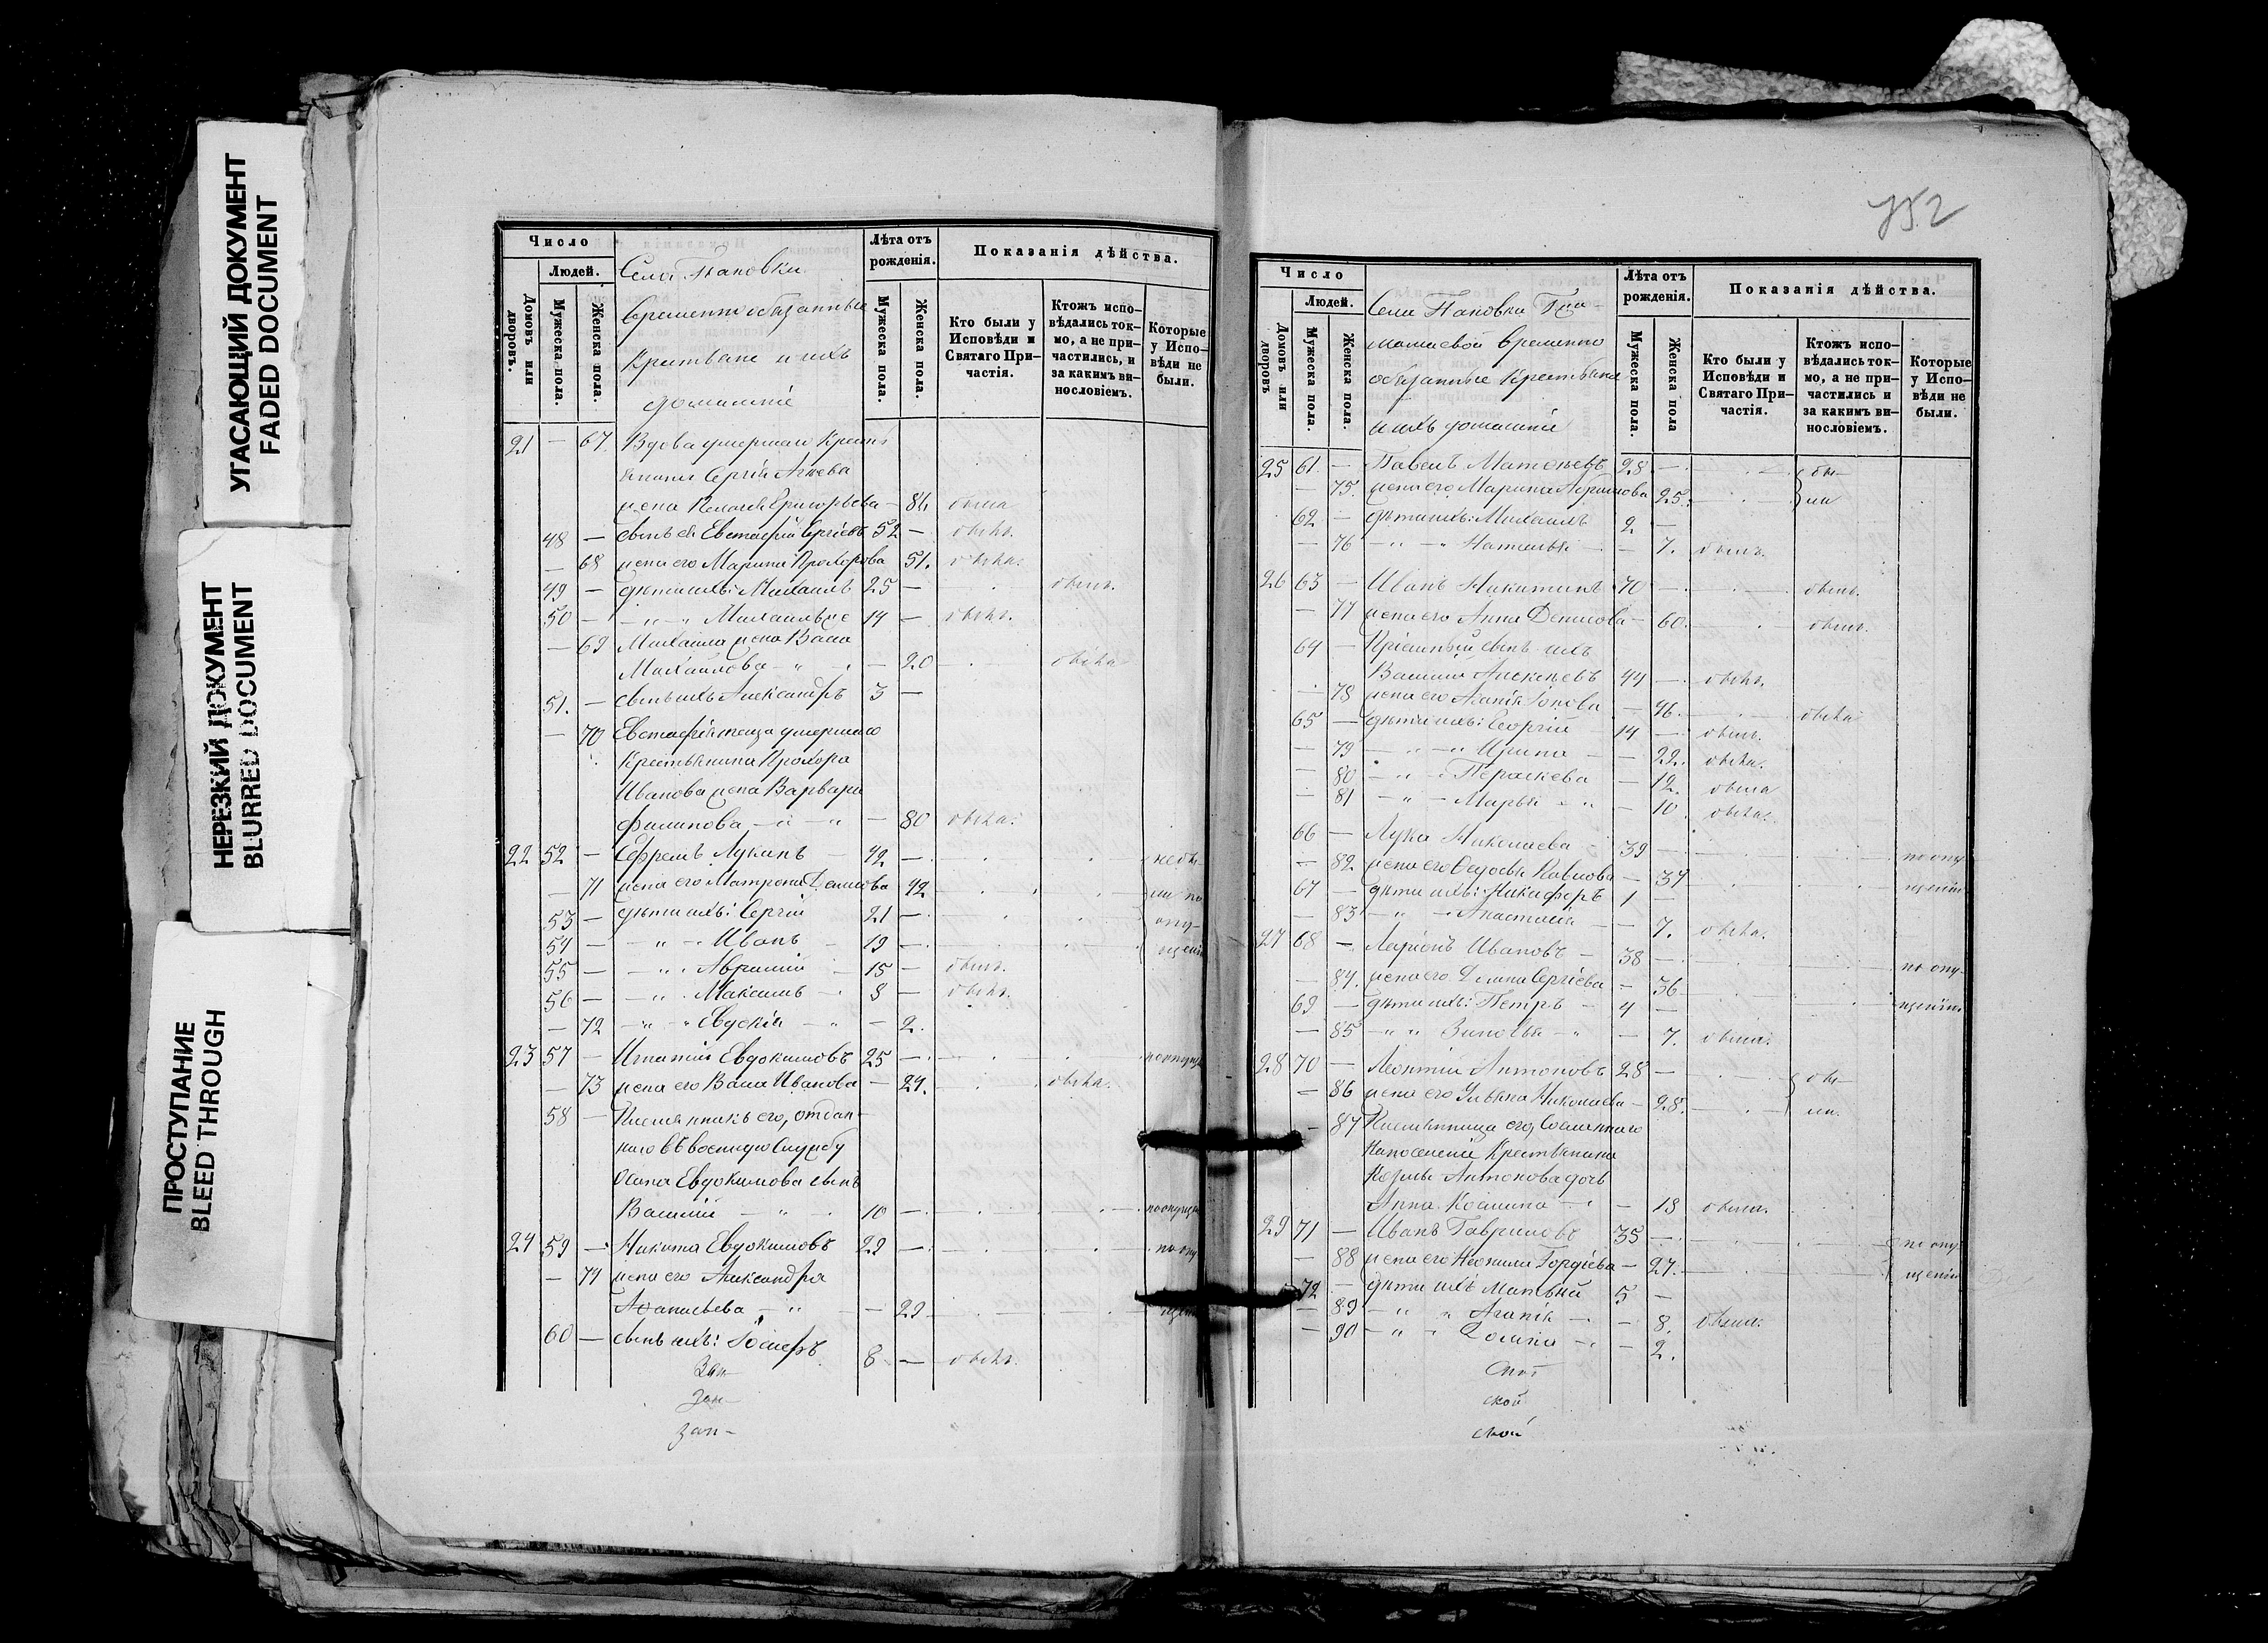 УГАСАЮЩИЙ ДОКУМЕНТ
FADED DOCUMENT
НЕРЕЗКИЙ ДОКУМЕНТ
BLURRED DOCUMENT
ПРОСТУПАНИЕ
BLEED THROUGH
Число
Людей.
Домовъ или дворовъ.
Мужеска пола.
Женска пола.
Села Пановки
временно обязанные
крестьяне и ихъ
домашніе
Лѣта отъ рожденія.
Мужеска пола.
Женска пола.
Показанія дѣйства.
Кто были у Исповѣди и Святаго Причастія.
Ктожъ исповѣдались токмо, а не причастились, и за какимъ винословіемъ.
Которые у Исповѣди не были.
21 — 67. Вдова умершаго Кресть
янина Сергія
жена Григорьева — 84
48 — сынъ ея Евстафій Сергіевъ 52 —
— 68 жена его Марина Прохорова 51.
49 — дѣти ихъ: Михаилъ 25 —
50 — — " — " Михаилъ же 14 —
— 69 Михаила жена Васса
Михайлова — " — 20
51. — сынъ ихъ Александръ 3 —
— 70 Евстафія теща умершаго
Крестьянина Прохора
Иванова жена Варвара
Филипова — " — " — 80
22 52 — Ефремъ Лукинъ 42 —
— 71 жена его Матрена Денисова 42
53 — дѣти ихъ: Сергій 21 —
54 — — " — Иванъ 19 —
55 — — " Аврамій 15 —
56 — — " Максимъ 8 —
— 72 — " — " Евдокія — " — 2.
23 57 — Игнатій Евдокимовъ 25 —
— 73 жена его Васса Иванова — 24.
58 — Племянникъ его, отдан-
наго въ военную службу
Осипа Евдокимова сынъ
Василій — " 10 —
24 59 — Никита Евдокимовъ 29 —
— 74 жена его Александра
Аѳанасьева — " — 29
60 — сынъ ихъ: Іосифъ 8 —
Зап-
Зап-
зап-
752
Число
Людей.
Домовъ или дворовъ
Мужеска пола.
Женска пола.
Села Пановки Гро-
махиевой временно
обязанные Крестьяне
и ихъ домашніе
Лѣта отъ рожденія.
Мужеска пола.
Женска пола
Показанія дѣйства.
Кто были у Исповѣди и Святаго Причастія.
Ктожъ исповѣдались токмо, а не причастились и за какимъ винословіемъ.
Которые у Исповѣди не были.
25 61. — Павелъ Матвѣевъ 28 — бы-
— 75. жена его Марина Абрамова 25. ли
62 — дѣти ихъ: Михаилъ 2 —
— 76 — " — " Наталья — 7.
26 63 — Иванъ Никитинъ 70 —
— 77 жена его Анна Денисова — 60.
64 — Пріемный сынъ ихъ
Василій Алексѣевъ 44 —
— 78 жена его Агапія Іонова — 46.
65 — дѣти ихъ: Георгій 14 —
— 79 — " — " Ирина — 22.
— 80 — " — Параскева — 12.
— 81 — " — Марья — " — 10
66 — Лука Николаевъ 39 — по опу-
— 82 жена его Ѳедосья Павлова — 34 щенію
67 — дѣти ихъ: Никифоръ 1 —
— 83 — " — Анастасія — 7.
27 68 — Ларіонъ Ивановъ — 38 — по опу-
— 84. жена его Сергіева — 36 щенію
69 — дѣти ихъ: Петръ — 4 —
— 85 — " " Зиновья — " — 7.
28 70 — Леонтій Антоновъ 28 — бы-
— 86 жена его Ульяна Николаева — 28. ли.
— 87 Племянница его, Сосланнаго
на поселеніе Крестьянина
Козьмы Антонова дочь
Анна Козмина — 18
29 71 — Иванъ Гавриловъ 35 — по опу-
— 88 жена его Неонила Гордіева — 27. щенію
72 — дѣти ихъ Матвѣй 5 —
— 89 — " " Агапія — 8.
— 90 — " — — 2.
ской
ской